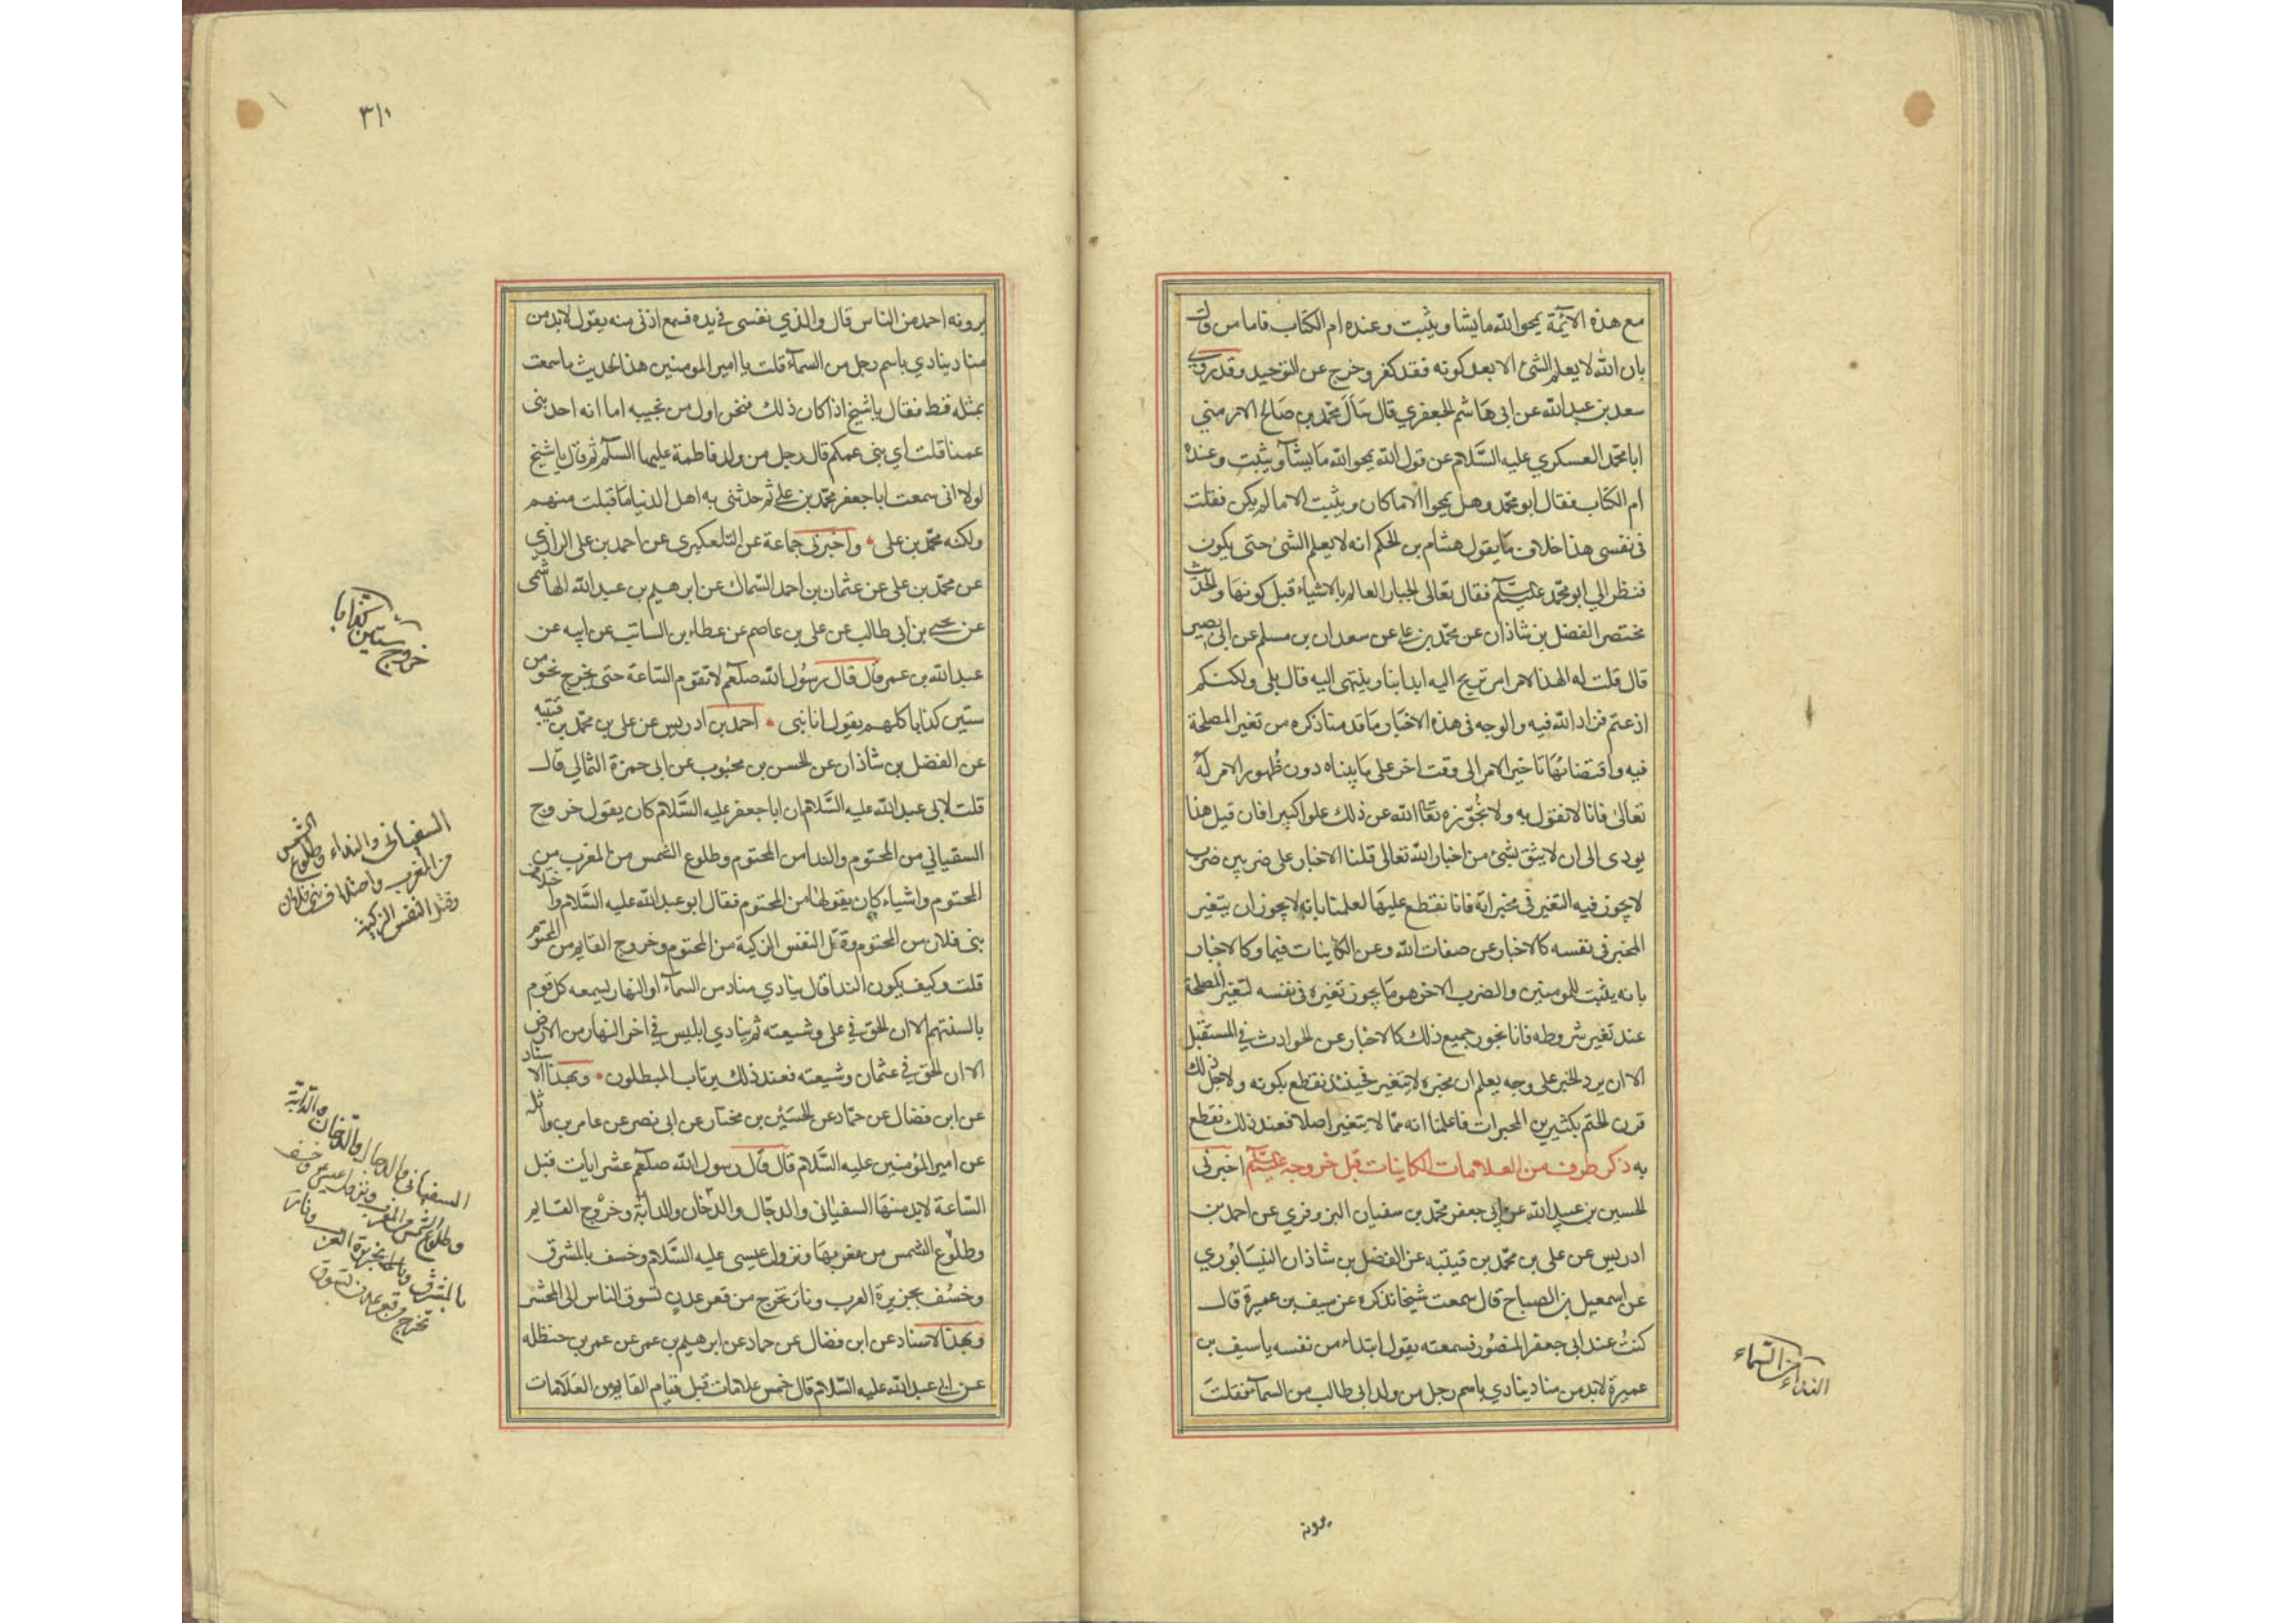 مع هذه الآية يمحو الله ما يشا ويثبت وعنده ام الكتاب فاما من قال
بان الله لا يعلم الشئ الا بعد كونه فقد كفر وخرج عن التوحيد وقد روى
سعد بن عبد الله عن ابى هاشم الجعفري قال سَال محمّد بن صالح الارمني
ابا محمّد العسكري عليه السَّلام عن قول الله يمحو الله ما يشآ ويثبت وعنده
ام الكتاب فقال ابو محمّد وهل يمحوا الا ما كان ويثبت الا ما لم يكن فقلت
فى نفسى هذا خلاف ما يقول هشام بن الحكم انه لا يعلم الشئ حتى يكون
فنظر الي ابو محمّد عليه السّلم فقال تعالى الجبار العالم بالاشياء قبل كونها والحديث
مختصر الفضل بن شاذان عن محمّد بن على عن سعدان بن مسلم عن ابى بصير
قال قلت له الهذا الامر امر تريح اليه ابداننا وينتهى اليه قال بلى ولكنكم
اذعتم فزاد الله فيه والوجه فى هذه الاخبار ما قدمنا ذكره من تغير المصلحة
فيه واقتضائها تاخير الامر الى وقت اخر على ما بيناه دون ظهور الامر له
تعالى فانا لا نقول به ولا نجوّزه تعالى الله عن ذلك علوا كبيرا فان قيل هذا
يودى الى ان لا يثق بشئ من اخبار الله تعالى قلنا الاخبار على ضربين ضرب
لا يجوز فيه التغير فى مخبراته فانا نقطع عليها لعلمنا بانه لا يجوز ان يتغير
المخبر فى نفسه كالاخبار عن صفات الله وعن الكاينات فيما وكالاخبار
بانه يثبت للمومنين والضرب الاخر هو ما يجوز تغيره فى نفسه لتغير المصلحة
عند تغير شروطه فانا نجوز جميع ذلك كالاخبار عن الحوادث في المستقبل
الا ان يرد الخبر على وجه يعلم ان مخبره لا يتغير فحينئذ نقطع بكونه ولاجل ذلك
قرن الحتم بكثير من المخبرات فاعلمنا انه مما لا يتغير اصلا فعند ذلك نقطع
به ذكر طرف من العلامات الكاينات قبل خروجه عليه السّلم اخبرنى
الحسين بن عبيد الله عن ابى جعفر محمّد بن سفيان البزوفري عن احمد بن
ادريس عن على بن محمّد بن قيتبه عن الفضل بن شاذان النيسابوري
عن اسمعيل بن الصباح قال سمعت شيخا نذكره عن سيف بن عميرة قال
كنتُ عند ابى جعفر المنصور فسمعته يقول ابتداء من نفسه يا سيف بن
عميرة لابد من مناد ينادي باسم رجل من ولد ابى طالب من السمآ فقلت
النداء من السماء
يرونه
٣١١
يرونه احد من الناس قال والذي نفسى فى يده فسمع اذنى منه يقول لابد من
مناد ينادي باسم رجل من السمآء قلت يا امير المومنين هذا الحديث ما سمعت
بمثله قط فقال يا شيخ اذا كان ذلك فنحن اول من نجيبه اما انه احد بنى
عمنا قلت اي بنى عمكم قال رجل من ولد فاطمة عليها السّلم ثم قال يا شيخ
لولا انى سمعت ابا جعفر محمّد بن على ثم حدثنى به اهل الدنيا ما قبلت منهم
ولكنه محمّد بن على واخبرنى جماعة عن التلعكبرى عن احمد بن على الرازي
عن محمّد بن على عن عثمان بن احمد السّماك عن ابرهيم بن عبد الله الهاشمى
عن يحيى بن ابى طالب عن على بن عاصم عن عطاء بن السائب عن ابيه عن
عبد الله بن عمر قال قال رسُول الله صلعم لا تقوم السّاعة حتى يخرج نحو من
ستين كذابا كلهم يقول انا نبى احمد بن ادريس عن على بن محمّد بن قتيبه
عن الفضل بن شاذان عن الحسن بن محبوب عن ابى حمزة الثمالي قال
قلت لابى عبد الله عليه السَّلام ان ابا جعفر عليه السَّلام كان يقول خروج
السفياني من المحتوم والندا من المحتوم وطلوع الشمس من المغرب من
المحتوم واشياء كان يقولها من المحتوم فقال ابو عبد الله عليه السَّلام واختلاف
بنى فلان من المحتوم وقتل النفس الزكية من المحتوم وخروج القايم من المحتوم
قلت وكيف يكون الندا قال ينادي مناد من السمآء اول النهار يسمعه كل قوم
بالسنتهم الا ان الحق في على وشيعته ثم ينادي ابليس في اخر النهار من الارض
الا ان الحق في عثمان وشيعته فعند ذلك يرتاب المبطلون وبهذا الاسناد
عن ابن فضال عن حمّاد عن الحسَين بن مختار عن ابى نصر عن عامر بن واثله
عن امير المؤمنين عليه السَّلام قال قال رسول الله صلعم عشر ايات قبل
السّاعة لابد منها السفيانى والدجّال والدّخان والدابّة وخروج القايم
وطلوع الشمس من مغربها ونزول عيسى عليه السَّلام وخسف بالمشرق
وخسُف بجزيرة العرب ونار تخرج من قعر عدن تسوق الناس الى المحشر
وبهذا الاسناد عن ابن فضال عن حماد عن ابرهيم بن عمر عن عمر بن حنظله
عن ابى عبد الله عليه السَّلام قال خمس علامات قبل قيام القايم من العَلامات
خروج ستين كذابا
السفيانى والنداء وطلوع الشمس
من المغرب واختلاف بنى فلان
وقتل النفس الزكية
السفيانى والدجال والدخان والدابة
وطلوع الشمس من المغرب ونزول عيسى وخسف
بالمشرق وبجزيرة العرب ونار
تخرج من قعر عدن تسوق